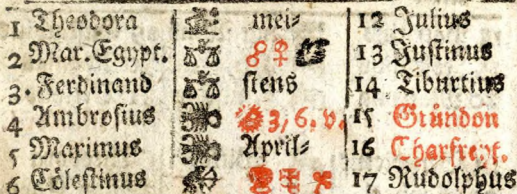 1 Theodora mei- 12 Julius
2 Mar. Egypt. ☍♀ 13 Justinus
3. Ferdinand stens 14 Tiburtius
4 Ambrosius 3, 6. v. 15 Gründon
5 Maximus April- 16 Charfreyt.
6 Cölestinus 17 Rudolphus